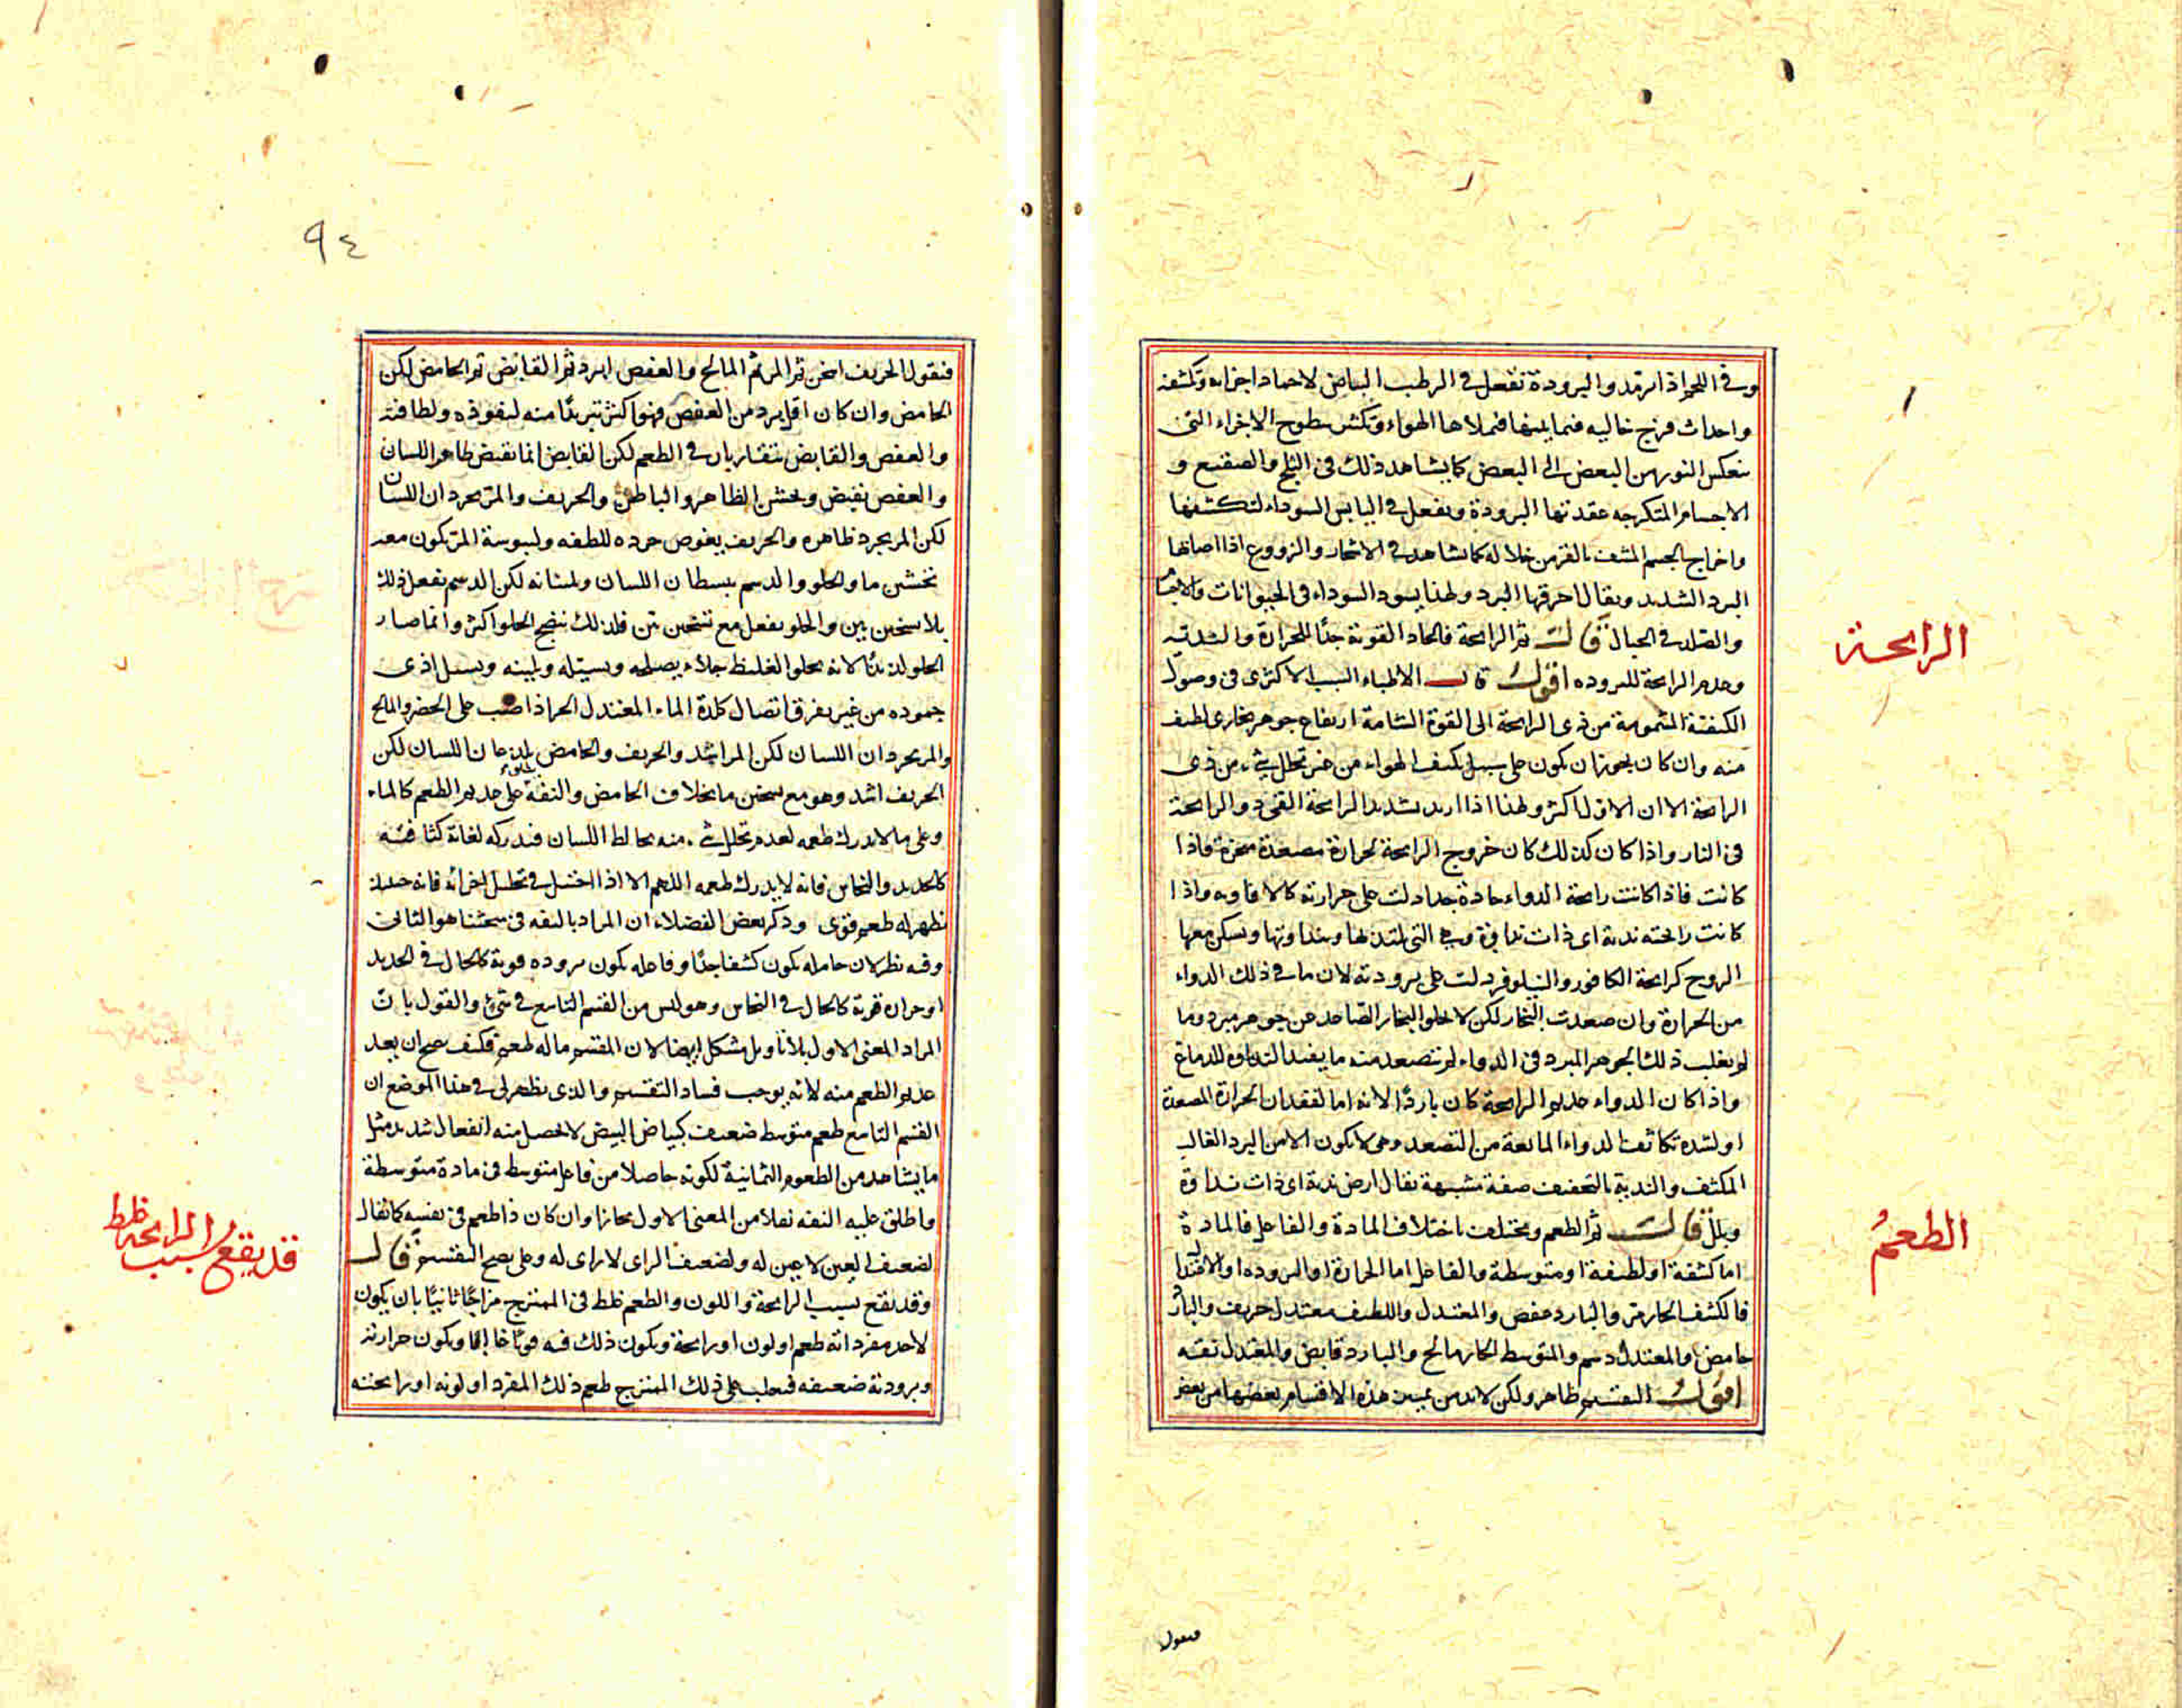 وفي اللحم اذا برد والبرودة تفعل في الرطب البياض لاجماد اجزائه وتكثفه
واحداث فرج خاليه فيما بينها فيملاها الهواء وتكثر سطوح الاجزاء التي
ينعكس النور من البعض الى البعض كما يشاهد ذلك في الثلج والصقيع و
الاجسام المتكرجه عقدتها البرودة ويفعل في اليابس السواد لتكثيفها
واخراج الجسم المشف بالقر من خلاله كما نشاهد في الاشجار والزروع اذا اصابها
البرد الشديد ويقال احرقها البرد ولهذا يسود السوداء في الحيوانات والاجسام
والصلد في الجبال قال ثم الرائحة فالحاد القوية جدا للحرارة والندية
وعديم الرائحة للبروده اقول قال الاطباء السبب الاكثرى في وصول
الكيفية المشمومة من ذى الرائحة الى القوة الشامة ارتفاع جوهر بخارى لطيف
منه وان كان يجوز ان يكون على سبيل تكيف الهواء من غير تحلل شيء من ذى
الرائحة الا ان الاول اكثر ولهذا اذا اريد تشديد الرائحة القى ذو الرائحة
في النار واذا كان كذلك كان خروج الرائحة لحرارة مصعدة مبخرة فاذا
كانت فاذا كانت رائحة الدواء حادة جدا دلت على حرارته كالافاويه واذا
كانت رائحته ندية اى ذات نداوة وهي التي يلتذ بها وبنداوتها ويسكن معها
الروح كرائحة الكافور والنيلوفر دلت على برودته لان ما في ذلك الدواء
من الحرارة وان صعدت البخار لكن لا يخلو البخار الصاعد عن جوهر مبرد وما
لم يغلب ذلك الجوهر المبرد في الدواء لم يتصعد منه ما يفيد النداوة للدماغ
واذا كان الدواء عديم الرائحة كان باردا لانه اما لفقدان الحرارة المصعدة
او لشدة تكاثف الدواء المانعة من التصعد وهي لا تكون الا من البرد الغالب
المكثف والندية بالتخفيف صفة مشبهة يقال ارض ندية اى ذات نداوة
وبلل قال ثم الطعم ويختلف باختلاف المادة والفاعل فالمادة
اما كثيفة او لطيفة او متوسطة والفاعل اما الحرارة او البروده او الاعتدال
فالكثيف الحار مر والبارد عفص والمعتدل واللطيف معتدل حريف والبارد
حامض والمعتدل دسم والمتوسط الحار مالح والبارد قابض والمعتدل تفه
اقول التقسيم ظاهر ولكن لا بد من تمييز هذه الاقسام بعضها من بعض
الرائحة
الطعم
فنقول
٩٤
فنقول الحريف اسخن ثم المر ثم المالح والعفص ابرد ثم القابض ثم الحامض لكن
الحامض وان كان اقل بردا من العفص فهو اكثر تبريدا منه لنفوذه ولطافته
والعفص والقابض يتقاربان في الطعم لكن القابض انما يقبض ظاهر اللسان
والعفص يقبض ويخشن الظاهر والباطن والحريف والمر يجردان اللسان
لكن المر يجرد ظاهره والحريف يغوص جرده للطفه وليبوسة المر تكون معه
تخشين ما والحلو والدسم يبسطان اللسان ويلسانه لكن الدسم يفعل ذلك
بلا تسخين بين والحلو يفعل مع تسخين بين فلذلك ينضج الحلو اكثر وانما صار
الحلو لذيذا لانه يجلو الغليظ جلاء يصلحه ويسيله ويلينه ويسيل اذى
جموده من غير تفرق اتصال كلذة الماء المعتدل الحر اذا صب على الخصر والمالح
والمر يجردان اللسان لكن المر اشد والحريف والحامض يلذعان اللسان لكن
الحريف اشد وهو مع تسخين ما بخلاف الحامض والتفه على عديم الطعم كالماء
وعلى ما لا يدرك طعمه لعدم تحلل شيء منه يخالط اللسان فيدركه لغاية كثافته
كالحديد والنحاس فانه لا يدرك طعمه اللهم الا اذا احتيل في تحليل اجزائه فانه حينئذ
يظهر له طعم قوى وذكر بعض الفضلاء ان المراد بالتفه في مبحثنا هو الثاني
وفيه نظر لان حامله يكون كثيفا جدا وفاعله يكون بروده قوية كالحال في الحديد
او حرارة قوية كالحال في النحاس وهو ليس من القسم التاسع في شئ والقول بان
المراد المعنى الاول بلا تاويل مشكل ايضا لان المقسم ما له طعم فكيف صح ان يعد
عديم الطعم منه لانه يوجب فساد التقسيم والذى يظهر لى في هذا الموضع ان
القسم التاسع طعم متوسط ضعيف كبياض البيض لا يحصل منه انفعال شديد مثل
ما يشاهد من الطعوم الثمانية لكونه حاصلا من فاعل متوسط في مادة متوسطة
واطلق عليه التفه نقلا من المعنى الاول مجازا وان كان ذا طعم في نفسه كما يقال
لضعيف العين لا عين له ولضعيف الراى لا راى له وعلى يصح التقسيم قال
وقد يقع بسبب الرائحة واللون والطعم غلط في الممتزج مزاجا ثانيا بان يكون
لاحد مفرداته طعم او لون او رائحة ويكون ذلك فيه قويا غالبا ويكون حرارته
وبرودته ضعيفه فيغلب على ذلك الممتزج طعم ذلك المفرد او لونه او رائحته
قد يقع بسبب الرائحة غلط